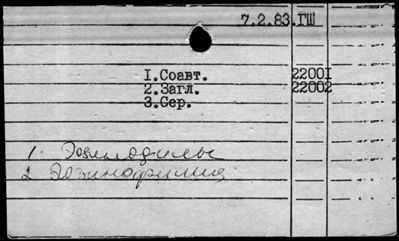 7.2.83.ГШ
I.Соавт. 2200I
2.Загл. 22002
3.Сер.
1. Эозинофилы
2. Эозинофилия